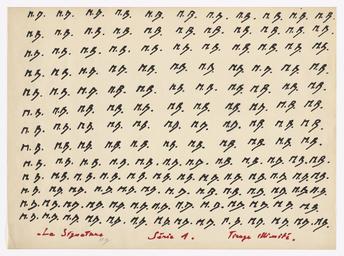 M.B. M.B. M.B. M.B. M.B. M.B. M.B. M.B. M.B. M.B. M.B.
M.B. M.B. M.B. M.B. M.B. M.B. M.B. M.B. M.B. M.B. M.B.
M.B. M.B. M.B. M.B. M.B. M.B. M.B. M.B. M.B. M.B. M.B.
M.B. M.B. M.B. M.B. M.B. M.B. M.B. M.B. M.B. M.B. M.B.
M.B. M.B. M.B. M.B. M.B. M.B. M.B. M.B. M.B. M.B. M.B.
M.B. M.B. M.B. M.B. M.B. M.B. M.B. M.B. M.B. M.B. M.B.
M.B. M.B. M.B. M.B. M.B. M.B. M.B. M.B. M.B. M.B. M.B.
M.B. M.B. M.B. M.B. M.B. M.B. M.B. M.B. M.B. M.B. M.B.
M.B. M.B. M.B. M.B. M.B. M.B. M.B. M.B. M.B. M.B. M.B. M.B. M.B.
M.B. M.B. M.B. M.B. M.B. M.B. M.B. M.B. M.B. M.B. M.B. M.B. M.B.
M.B. M.B. M.B. M.B. M.B. M.B. M.B. M.B. M.B. M.B. M.B. M.B. M.B. M.B.
M.B. M.B. M.B. M.B. M.B. M.B. M.B. M.B. M.B. M.B. M.B. M.B. M.B. M.B.
M.B. M.B. M.B. M.B. M.B. M.B. M.B. M.B. M.B. M.B. M.B. M.B. M.B. M.B.
La Signature Série 1. Tirage illimité.